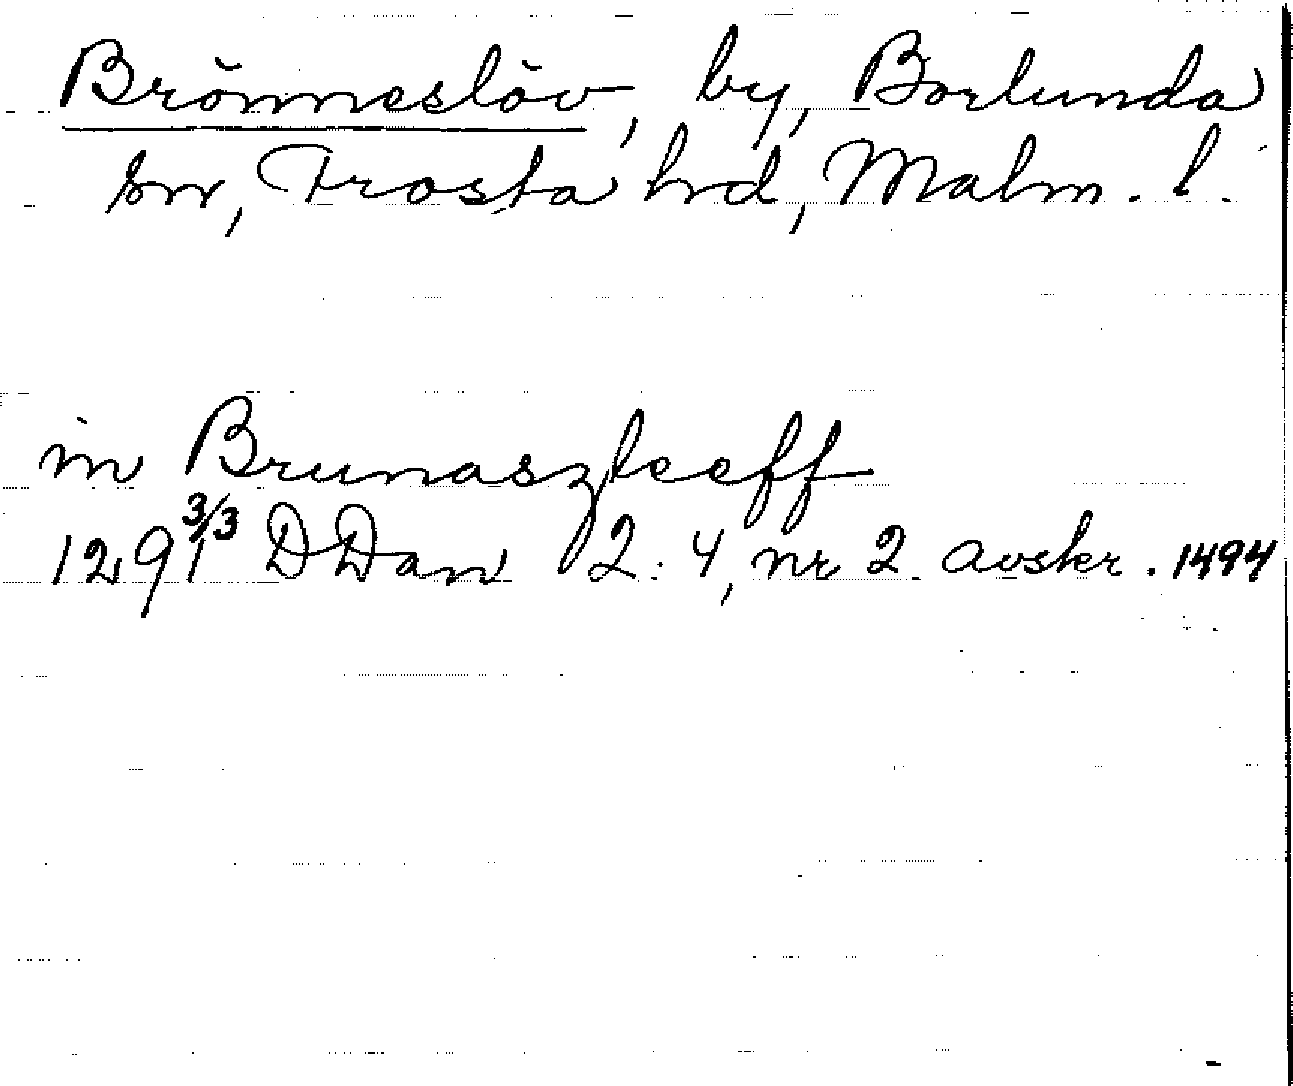 Brönneslöv, by, Borlunda
sn, Frosta hrd, Malm. l.
in Brunaszleeff
1291 3/3 DDan 2:4, nr 2. avskr. 1494